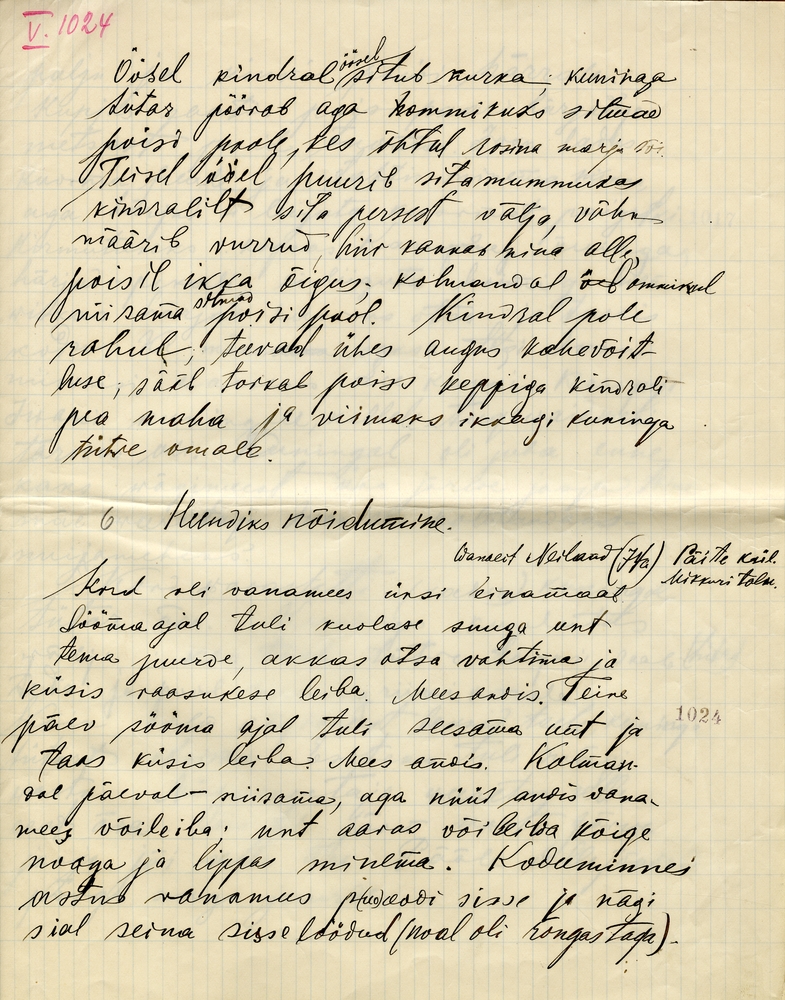 V. 1024
Öösel kindral öösel situb kurka; kuninga
tütar pöörab aga hommikuks silmad
poisi poole, kes õhtul rosina marju sõi.
Teisel ööel puurib sitamummukas
kindralilt sita persest välja, vähn
määrib vurrud, hiir kannab nina alle,
poisil ikka õigus; kolmandal ommikul
niisama silmad poisi pool. Kindral pole
rahul, teevad ühes augus kahevõit-
luse, sääl torkab poiss keppiga kindrali
pea maha ja viimaks ikkagi kuninga
tütre omale.
6 Hundiks nõidumine.
Vanaeit Neiland (77a) Päite kül.
Mikkuri talu.
Kord oli vanamees üksi einamaal
Sööma ajal tuli kuolase suuga unt
tema juurde, akkas otsa vahtima ja
küsis raasukese leiba. Mees andis. Teine
päev sööma ajal tuli seesama unt ja
1024
taas küsis leiba. Mees andis. Kolman-
dal päeval – niisama, aga nüüd andis vana-
mees võileiba; unt aaras võileiba kõige
noaga ja lippas minema. Koduminnes
astus vanamees sisse ja nägi
sial seina sisse löödud (noal oli rongas taga).